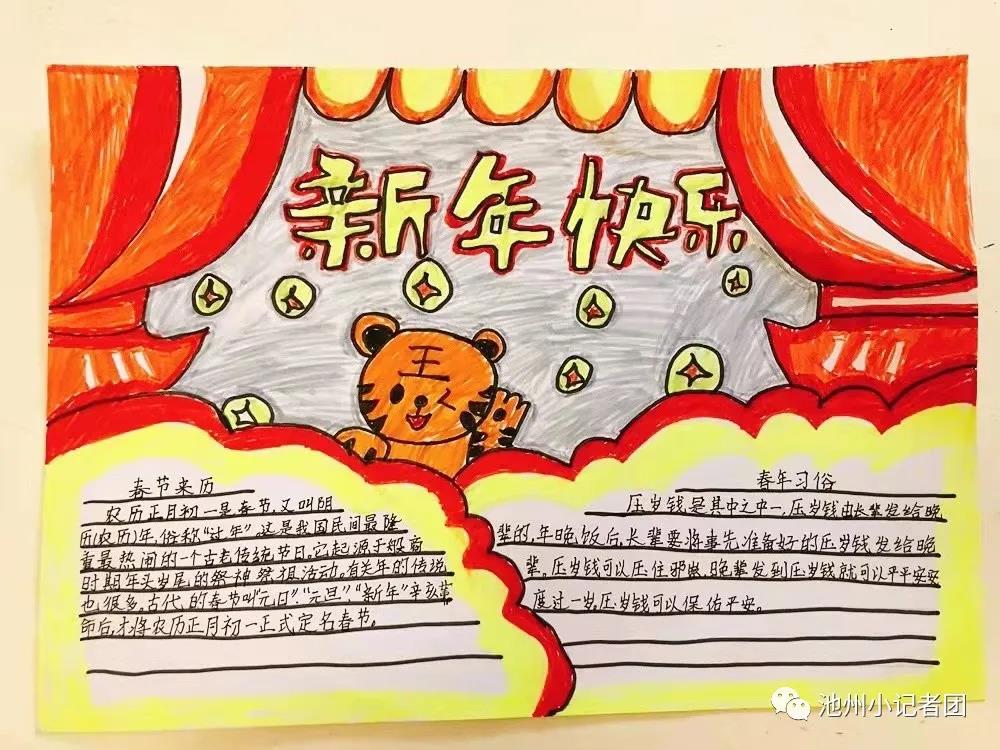 新年快乐
王
春节来历
农历正月初一是春节,又叫阴
历(农历)年,俗称“过年”。这是我国民间最隆
重最热闹的一个古老传统节日。它起源于殷商
时期年头岁尾的祭神祭祖活动。有关年的传说
也很多。古代的春节叫“元日”、“元旦”、“新年”辛亥革
命后,才将农历正月初一正式定名春节。
春年习俗
压岁钱是其中之中一,压岁钱由长辈发给晚
辈的,年晚饭后,长辈要将事先准备好的压岁钱发给晚
辈。压岁钱可以压住邪祟,晚辈发到压岁钱就可以平平安安
度过一岁,压岁钱可以保佑平安。
池州小记者团